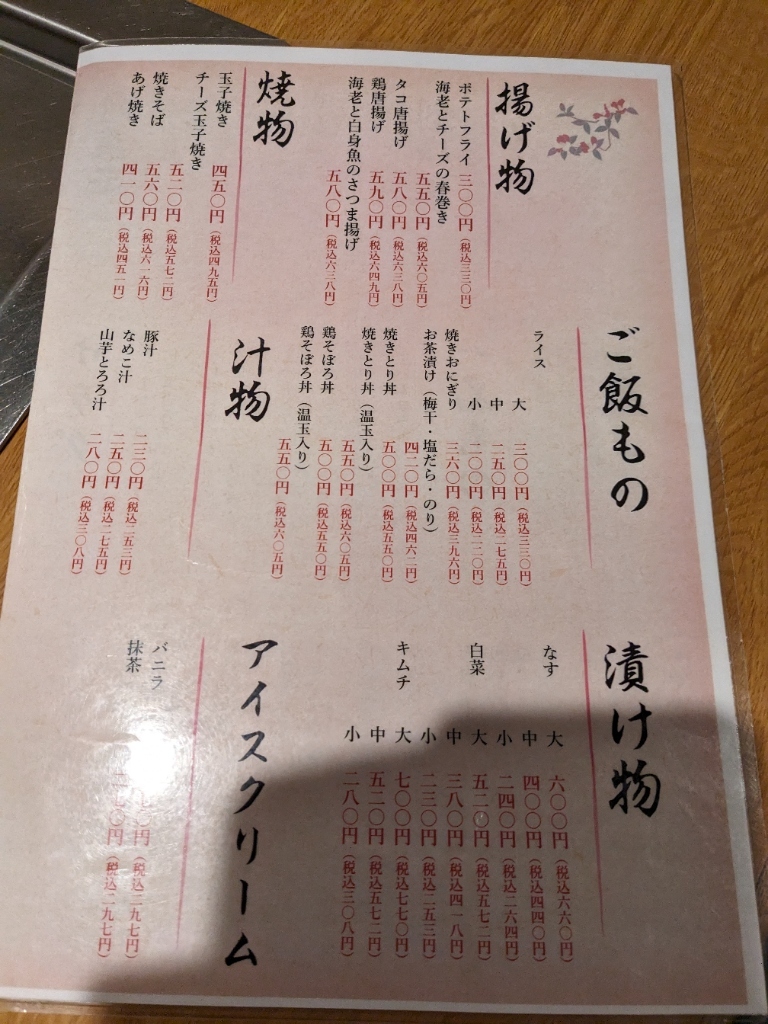 揚げ物
ポテトフライ 三〇〇円（税込三三〇円）
海老とチーズの春巻き 五五〇円（税込六〇五円）
タコ唐揚げ 五八〇円（税込六三八円）
鶏唐揚げ 五九〇円（税込六四九円）
海老と白身魚のさつま揚げ 五八〇円（税込六三八円）
焼物
玉子焼き 四五〇円（税込四九五円）
チーズ玉子焼き 五二〇円（税込五七二円）
焼きそば 五六〇円（税込六一六円）
あげ焼き 四一〇円（税込四五一円）
ご飯もの
ライス 大 三〇〇円（税込三三〇円）
中 二五〇円（税込二七五円）
小 二〇〇円（税込二二〇円）
焼きおにぎり 三六〇円（税込三九六円）
お茶漬け（梅干・塩だら・のり） 四二〇円（税込四六二円）
焼きとり丼 五〇〇円（税込五五〇円）
焼きとり丼（温玉入り） 五五〇円（税込六〇五円）
鶏そぼろ丼 五〇〇円（税込五五〇円）
鶏そぼろ丼（温玉入り） 五五〇円（税込六〇五円）
汁物
豚汁 二三〇円（税込二五三円）
なめこ汁 二五〇円（税込二七五円）
山芋とろろ汁 二八〇円（税込三〇八円）
漬け物
なす 大 六〇〇円（税込六六〇円）
中 四〇〇円（税込四四〇円）
小 二四〇円（税込二六四円）
白菜 大 五二〇円（税込五七二円）
中 三八〇円（税込四一八円）
小 二三〇円（税込二五三円）
キムチ 大 七〇〇円（税込七七〇円）
中 五二〇円（税込五七二円）
小 二八〇円（税込三〇八円）
アイスクリーム
バニラ 〇円（税込二九七円）
抹茶 二七〇円（税込二九七円）